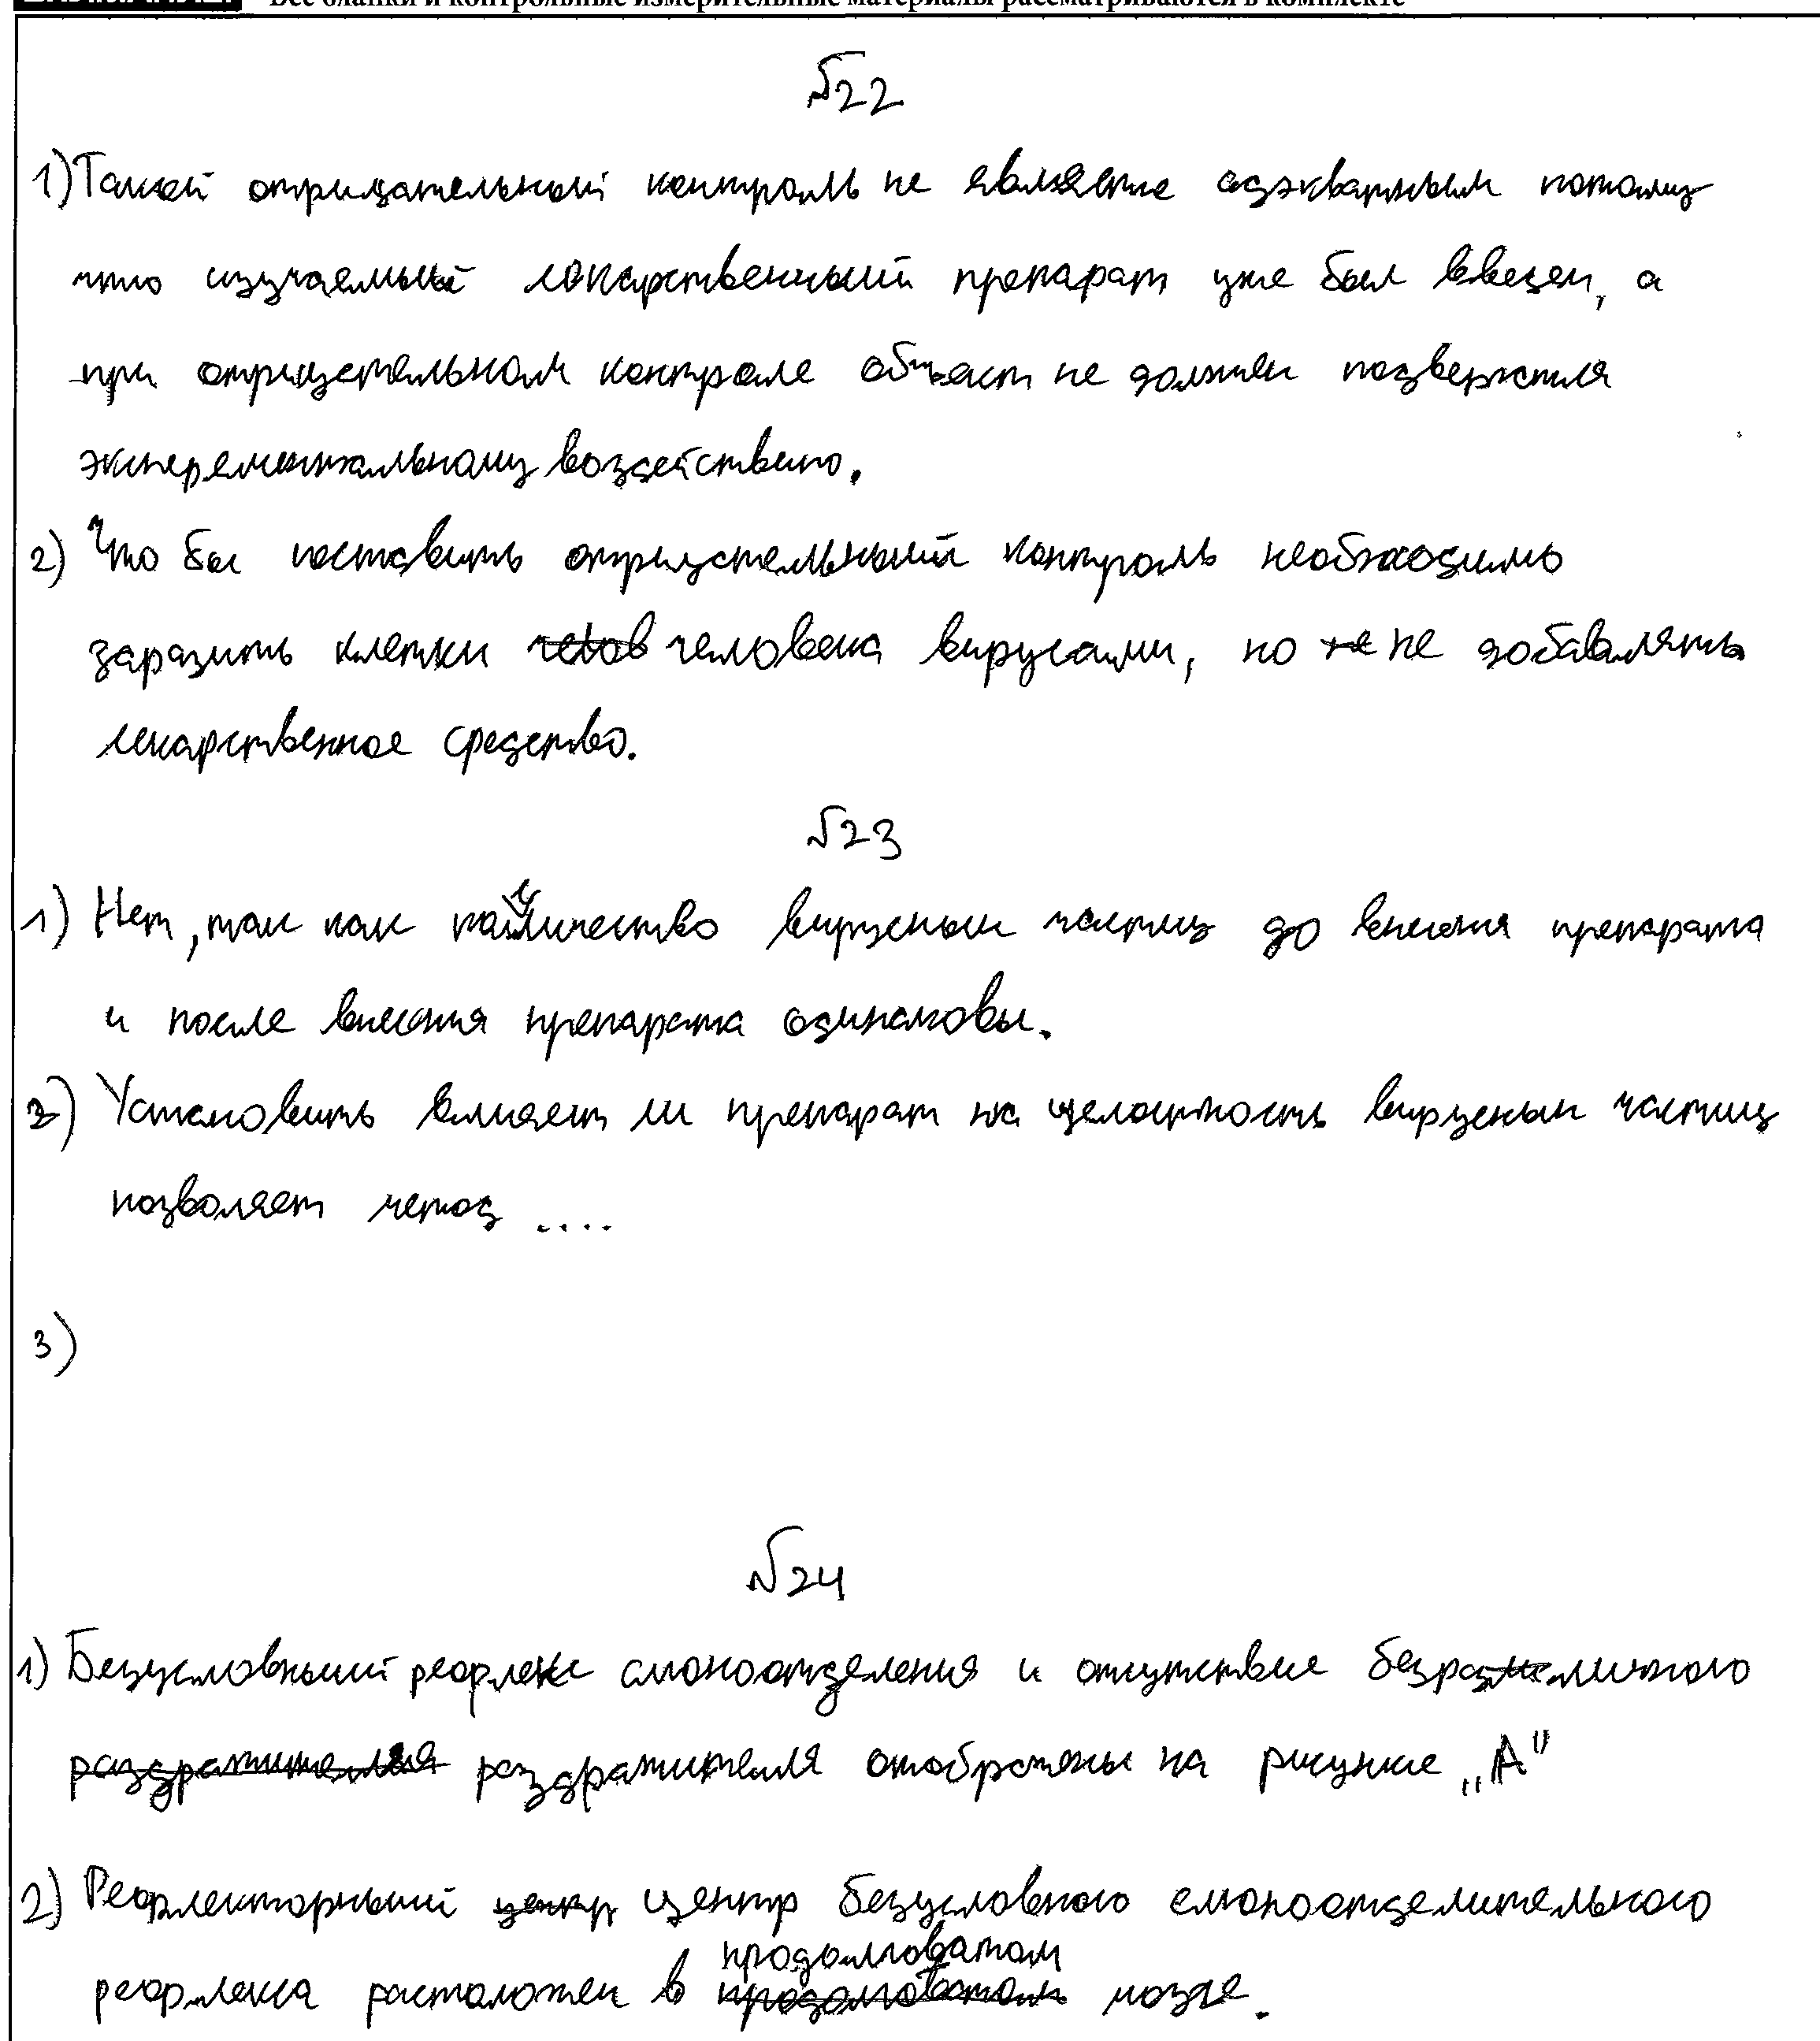 Все бланки и контрольные измерительные материалы рассматриваются в комплекте
№22
1) Такой отрицательный контроль не является адэкватным потому
что изучаемый лекарственный препарат уже был введен, а
при отрицательном контроле объект не должен подвергатся
эксперементальному воздействию.
2) Что бы поставить отрицательный контроль необходимо
заразить клетки человека вирусами, но не добавлять
лекарственное средство.
№23
1) Нет, так как количество вирусных частиц до внесения препарата
и после внесения препарата одинаковы.
2) Установить влияет ли препарат на целостность вирусных частиц
позволяет метод ....
3)
№24
1) Безусловный рефлекс слюноотделения и отсутствие безразличного
раздражителя раздражителя отображены на рисунке „А"
2) Рефлекторный центр центр безусловного слюноотделительного
продолговатом
рефлекса расположен в продолговатом мозге.